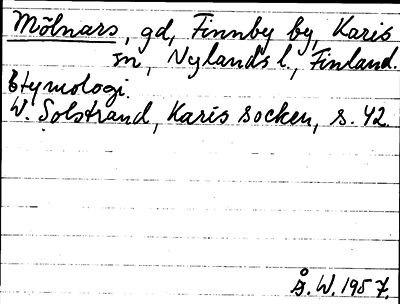 Mölnars, gd, Finnby by, Karis
sn, Nylands l., Finland.
Etymologi.
W. Solstrand, Karis socken, s. 42.
Å. W. 1957.